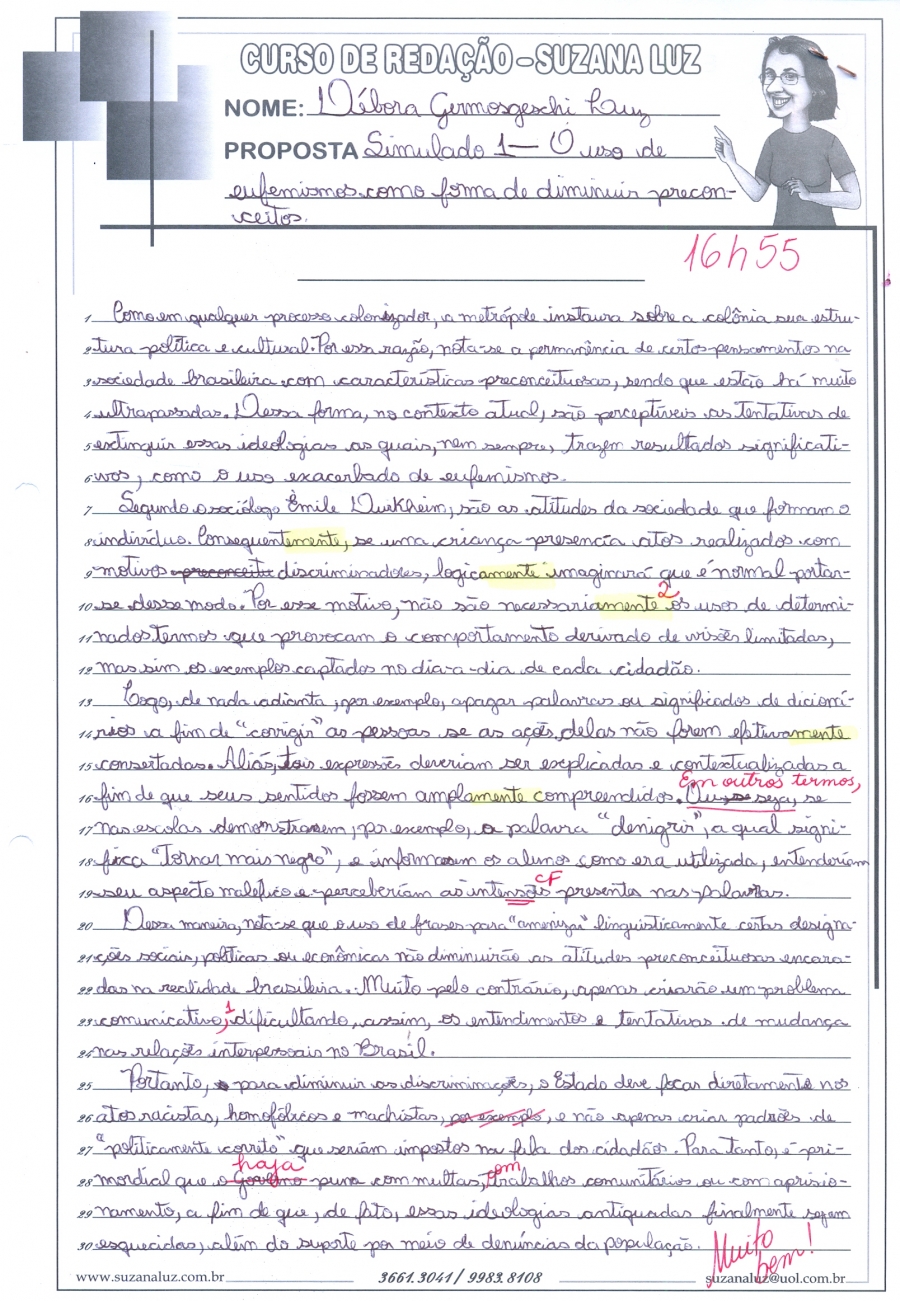 CURSO DE REDAÇÃO - SUZANA LUZ
NOME: Débora Germosgeschi Luz
PROPOSTA Simulado 1 — O uso de
eufemismos como forma de diminuir precon-
ceitos.
16h55
1 Como em qualquer processo colonizador, a metrópole instaura sobre a colônia sua estru-
2 tura política e cultural. Por essa razão, nota-se a permanência de certos pensamentos na
3 sociedade brasileira com características preconceituosas, sendo que estão há muito
4 ultrapassadas. Dessa forma, no contexto atual, são perceptíveis as tentativas de
5 extinguir essas ideologias as quais, nem sempre, trazem resultados significati-
6 vos, como o uso exacerbado de eufemismos.
7 Segundo o sociólogo Émile Durkheim, são as atitudes da sociedade que formam o
8 indivíduo. Consequentemente, se uma criança presencia atos realizados com
9 motivos preconceito discriminadores, logicamente imaginará que é normal portar-
2
10 se desse modo. Por esse motivo, não são necessariamente os usos de determi-
11 nados termos que provocam o comportamento derivado de visões limitadas,
12 mas sim os exemplos captados no dia-a-dia de cada cidadão.
13 Logo, de nada adianta, por exemplo, apagar palavras ou significados de dicioná-
14 rios a fim de "corrigir" as pessoas se as ações delas não forem efetivamente
15 consertadas. Aliás, tais expressões deveriam ser explicadas e contextualizadas a
Em outros termos,
16 fim de que seus sentidos fossem amplamente compreendidos. Ou seja, se
17 nas escolas demonstrassem, por exemplo, a palavra "denigrir", a qual signi-
18 fica "tornar mais negro", e informassem os alunos como era utilizada, entenderiam
CF
19 seu aspecto maléfico e perceberiam as intensões presentes nas palavras.
20 Dessa maneira, nota-se que o uso de frases para "amenizar" linguisticamente certas designa-
21 ções sociais, políticas ou econômicas não diminuirão as atitudes preconceituosas encara-
22 das na realidade brasileira. Muito pelo contrário, apenas criarão um problema
1
23 comunicativo, dificultando, assim, os entendimentos e tentativas de mudança
24 nas relações interpessoais no Brasil.
25 Portanto, para diminuir as discriminações, o Estado deve focar diretamente nos
26 atos racistas, homofóbicos e machistas, por exemplo, e não apenas criar padrões de
27 "politicamente correto" que seriam impostos na fala dos cidadãos. Para tanto, é pri-
haja com
28 mordial que o Governo puna com multas, trabalhos comunitários ou com aprisio-
29 namento, a fim de que, de fato, essas ideologias antiquadas finalmente sejam
30 esquecidas, além do suporte por meio de denúncias da população.
Muito
bem!
www.suzanaluz.com.br 3661.3041 / 9983.8108 suzanaluz@uol.com.br